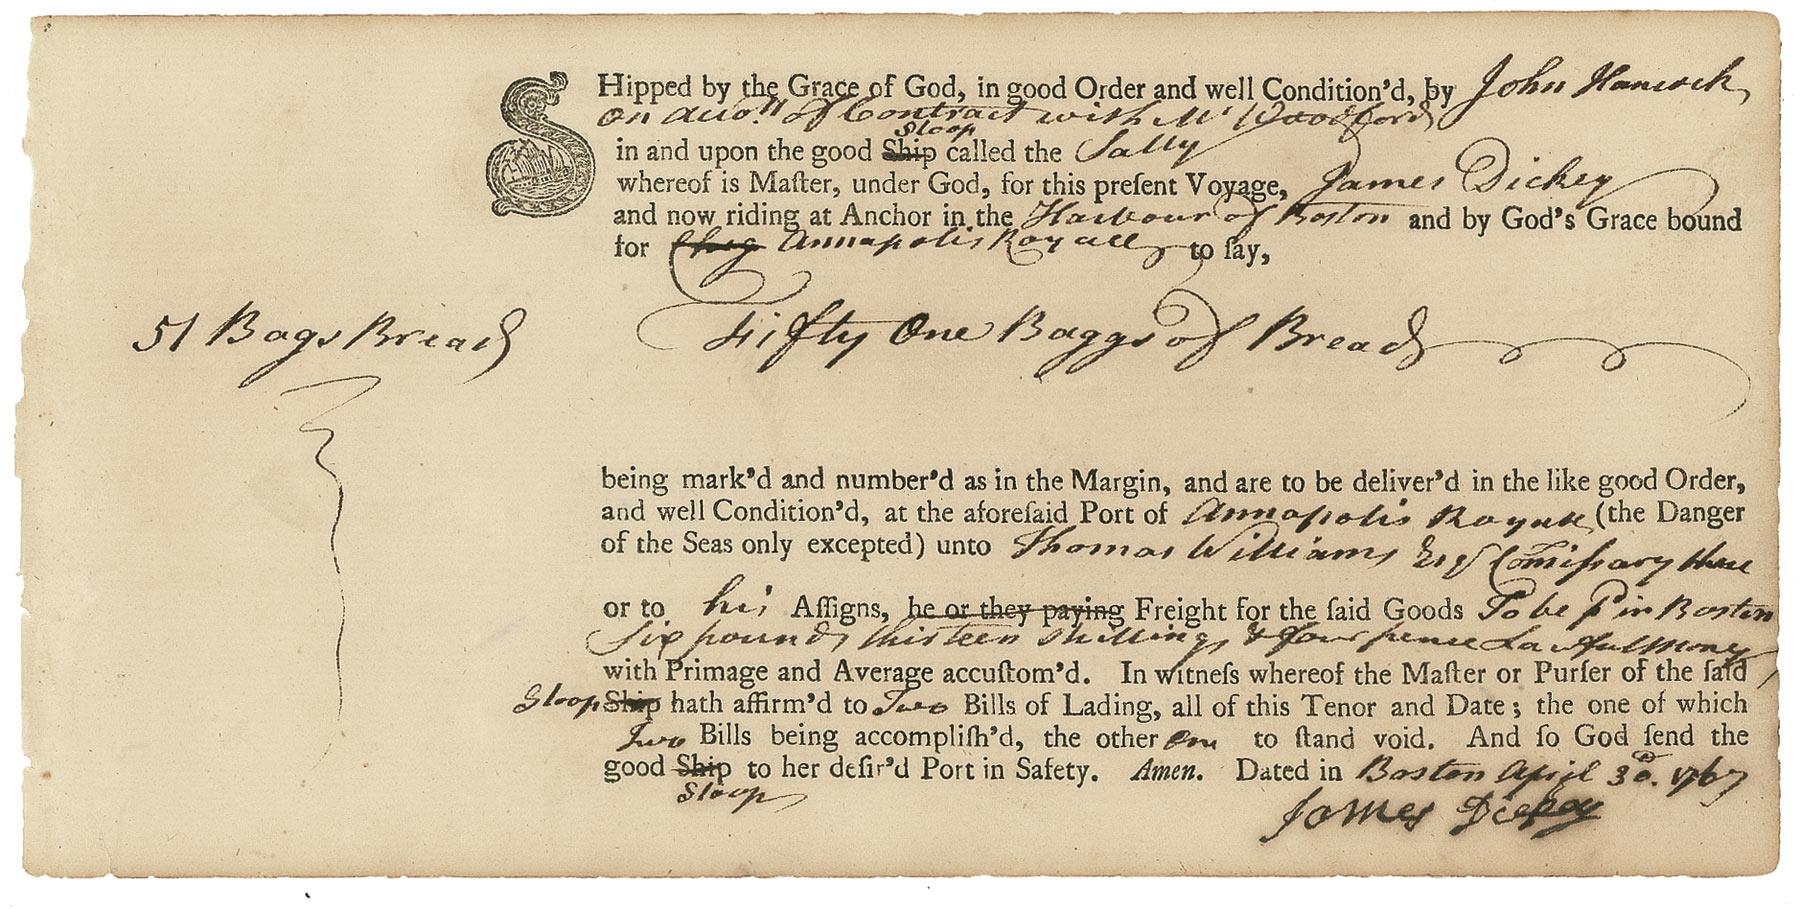 SHipped by the Grace of God, in good Order and well Condition'd, by John Hancock
on Acco.tt of Contract with Mr Woodford
in and upon the good ~~Ship~~ Sloop called the Sally
whereof is Maſter, under God, for this preſent Voyage, James Dickey
and now riding at Anchor in the Harbour of Boston and by God's Grace bound
for Annapolis Royall to ſay,
51 Bags Bread
Fifty One Baggs of Bread
being mark'd and number'd as in the Margin, and are to be deliver'd in the like good Order,
and well Condition'd, at the aforeſaid Port of Annapolis Royall (the Danger
of the Seas only excepted) unto Thomas Williams Esqr Comiſsary there
or to his Aſſigns, ~~he or they paying~~ Freight for the ſaid Goods To be pd in Boston
Six pounds thirteen shillings & four pence Lawfull Money
with Primage and Average accuſtom'd. In witneſs whereof the Maſter or Purſer of the ſaid
Sloop ~~Ship~~ hath affirm'd to Two Bills of Lading, all of this Tenor and Date; the one of which
Two Bills being accompliſh'd, the other One to ſtand void. And ſo God ſend the
good ~~Ship~~ to her deſir'd Port in Safety. Amen. Dated in Boston April 3d. 1767
Sloop
James Dickey